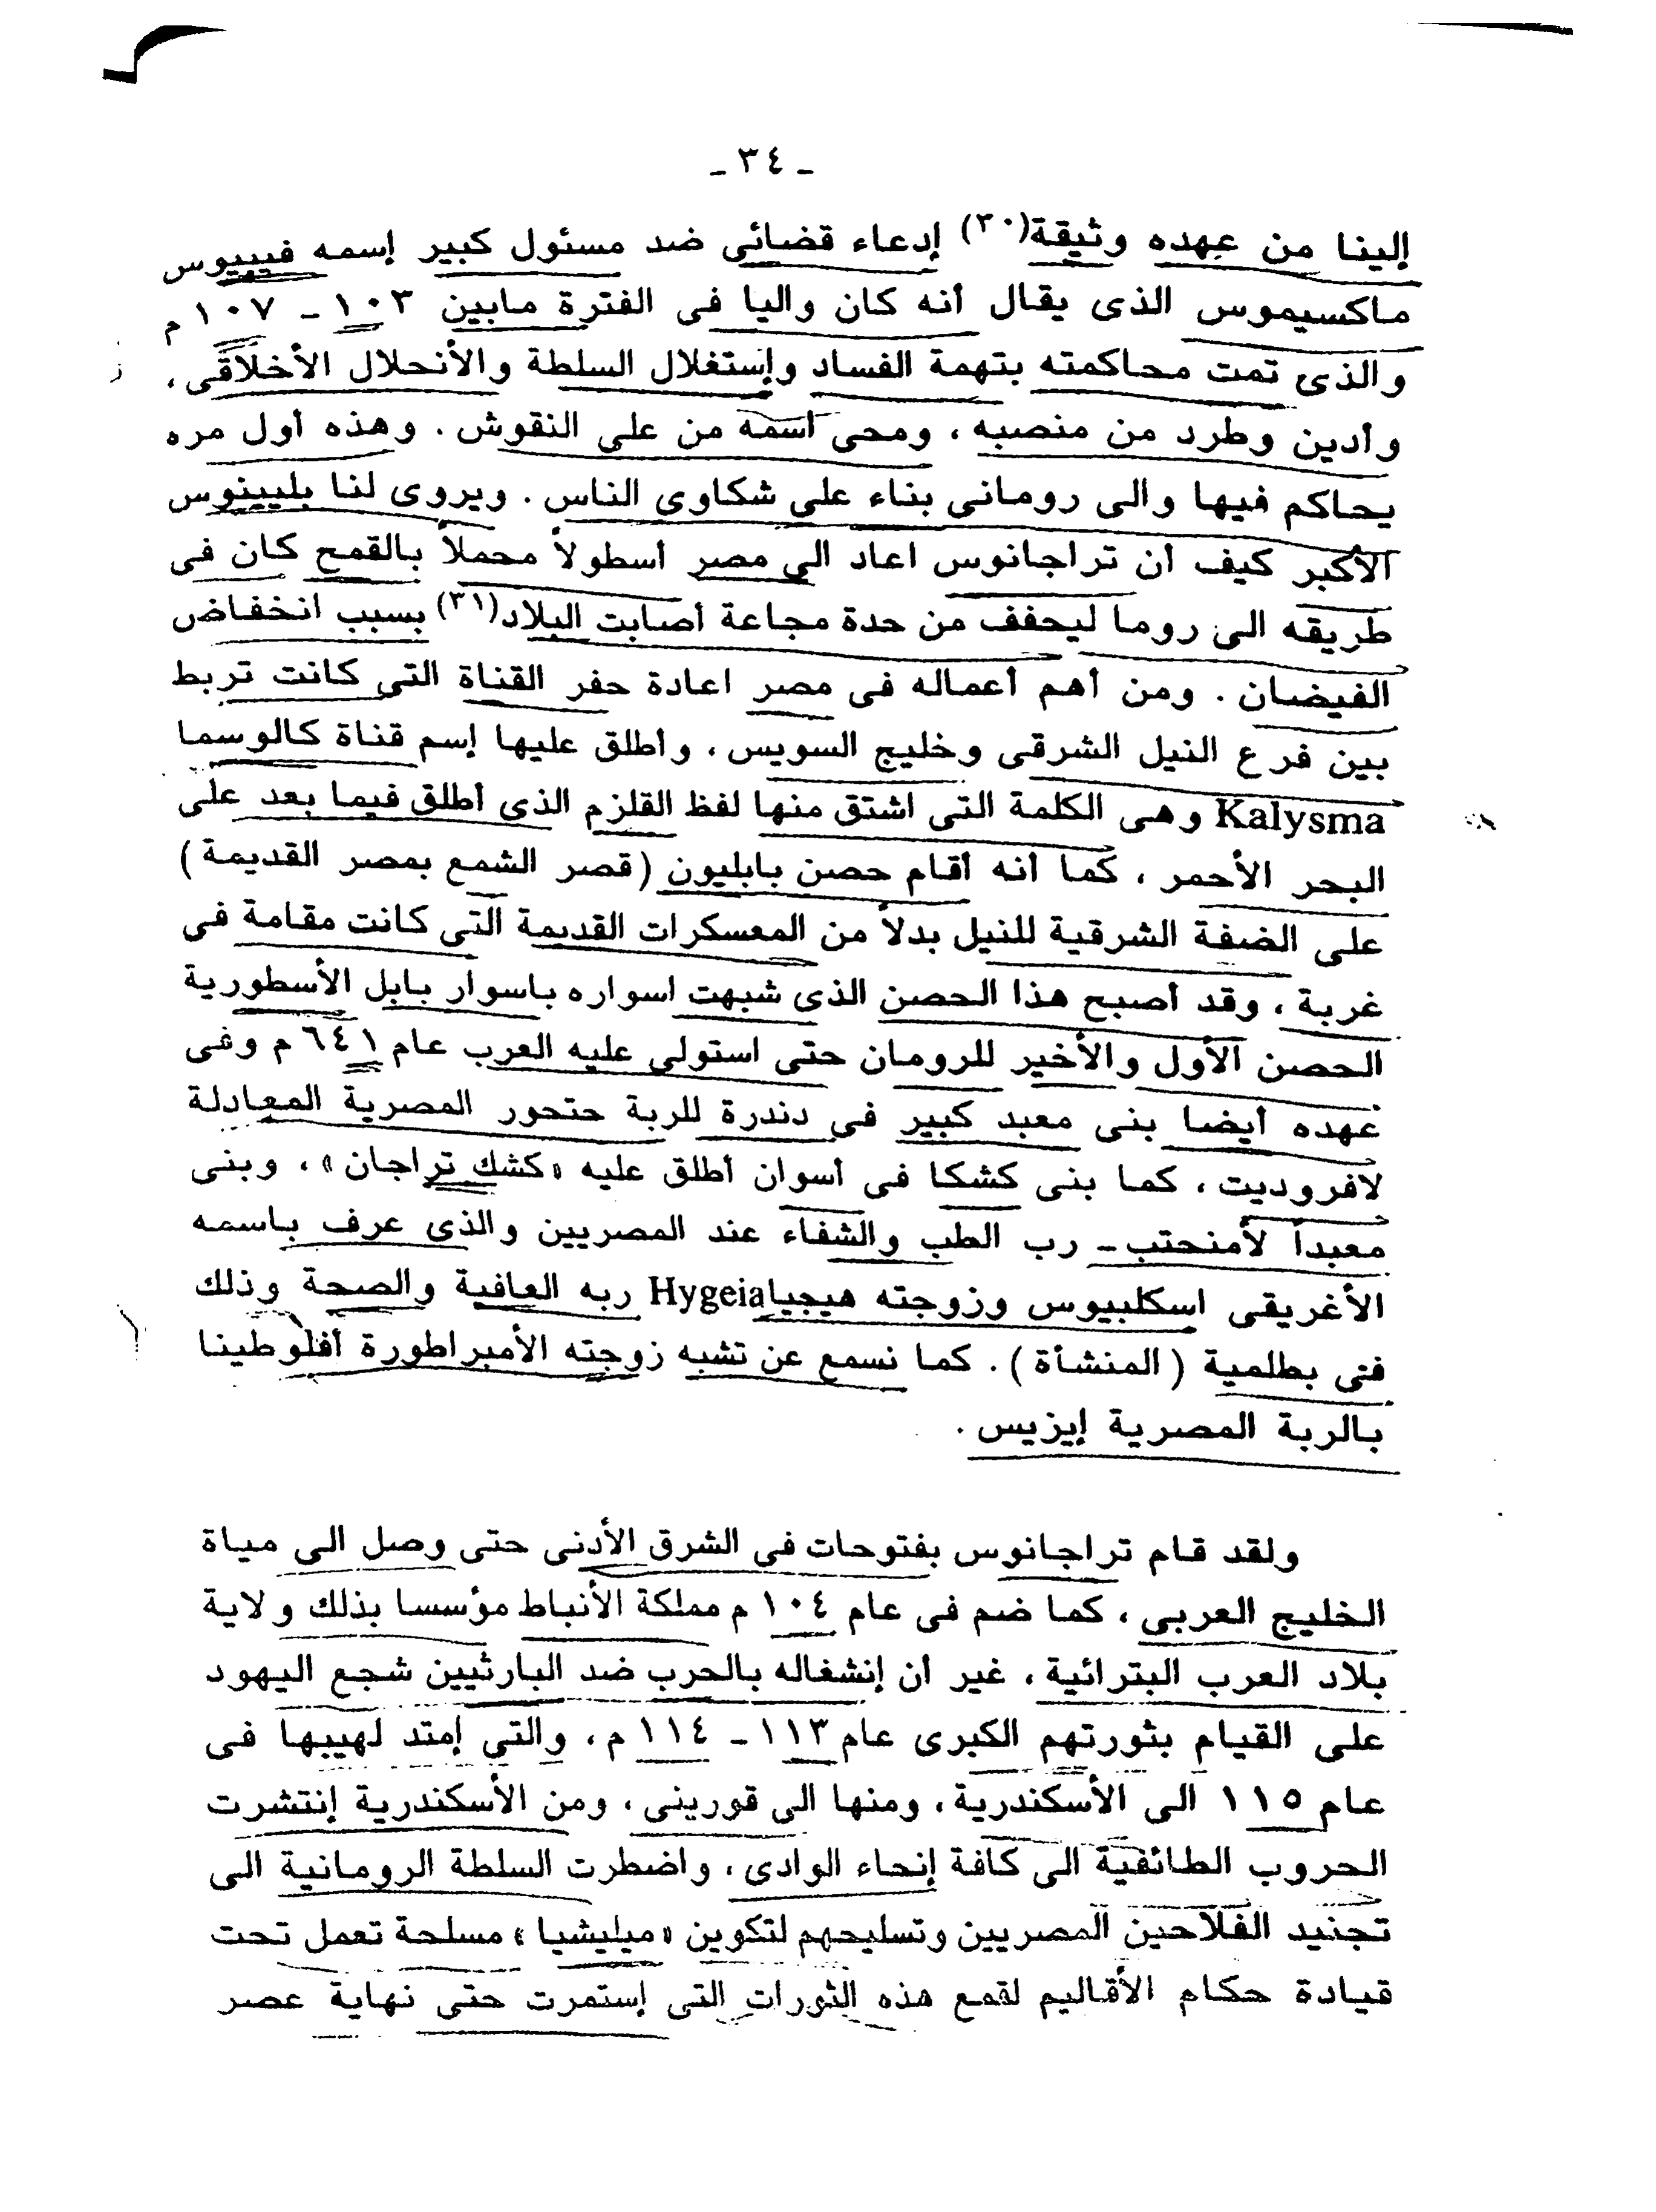 - ٣٤ -
إلينا من عهده وثيقة(٣٠) إدعاء قضائى ضد مسئول كبير إسمه فيبيوس
ماكسيموس الذى يقال أنه كان واليا فى الفترة مابين ١٠٣ - ١٠٧ م
والذى تمت محاكمته بتهمة الفساد وإستغلال السلطة والأنحلال الأخلاقى،
وأدين وطرد من منصبه ، ومحى اسمه من على النقوش . وهذه أول مره
يحاكم فيها والى رومانى بناء على شكاوى الناس . ويروى لنا بليينوس
الأكبر كيف أن تراجانوس اعاد الى مصر أسطولاً محملاً بالقمح كان فى
طريقه الى روما ليخفف من حدة مجاعة أصابت البلاد(٣١) بسبب انخفاض
الفيضان . ومن أهم أعماله فى مصر اعادة حفر القناة التى كانت تربط
بين فرع النيل الشرقى وخليج السويس ، وأطلق عليها إسم قناة كالوسما
Kalysma وهى الكلمة التى اشتق منها لفظ القلزم الذى أطلق فيما بعد على
البحر الأحمر ، كما أنه أقام حصن بابليون (قصر الشمع بمصر القديمة)
على الضفة الشرقية للنيل بدلاً من المعسكرات القديمة التى كانت مقامة فى
غربة ، وقد أصبح هذا الحصن الذى شبهت اسواره باسوار بابل الأسطورية
الحصن الأول والأخير للرومان حتى استولى عليه العرب عام ٦٤١ م وفى
عهده أيضا بنى معبد كبير فى دندرة للربة حتحور المصرية المعادلة
لافروديت ، كما بنى كشكا فى أسوان أطلق عليه «كشك تراجان» ، وبنى
معبداً لأمنحتب - رب الطب والشفاء عند المصريين والذى عرف باسمه
الأغريقى اسكلبيوس وزوجته هيجيا Hygeia ربه العافية والصحة وذلك
فى بطلمية (المنشأة) . كما نسمع عن تشبه زوجته الأمبراطورة أفلوطينا
بالربة المصرية إيزيس .
ولقد قام تراجانوس بفتوحات فى الشرق الأدنى حتى وصل الى مياة
الخليج العربى ، كما ضم فى عام ١٠٤ م مملكة الأنباط مؤسسا بذلك ولاية
بلاد العرب البترائية ، غير أن إنشغاله بالحرب ضد البارثيين شجع اليهود
على القيام بثورتهم الكبرى عام ١١٣ - ١١٤ م ، والتى إمتد لهيبها فى
عام ١١٥ الى الأسكندرية ، ومنها الى قورينى ، ومن الأسكندرية إنتشرت
الحروب الطائفية الى كافة إنحاء الوادى ، واضطرت السلطة الرومانية الى
تجنيد الفلاحين المصريين وتسليحهم لتكوين «ميليشيا» مسلحة تعمل تحت
قيادة حكام الأقاليم لقمع هذه الثورات التى إستمرت حتى نهاية عصر